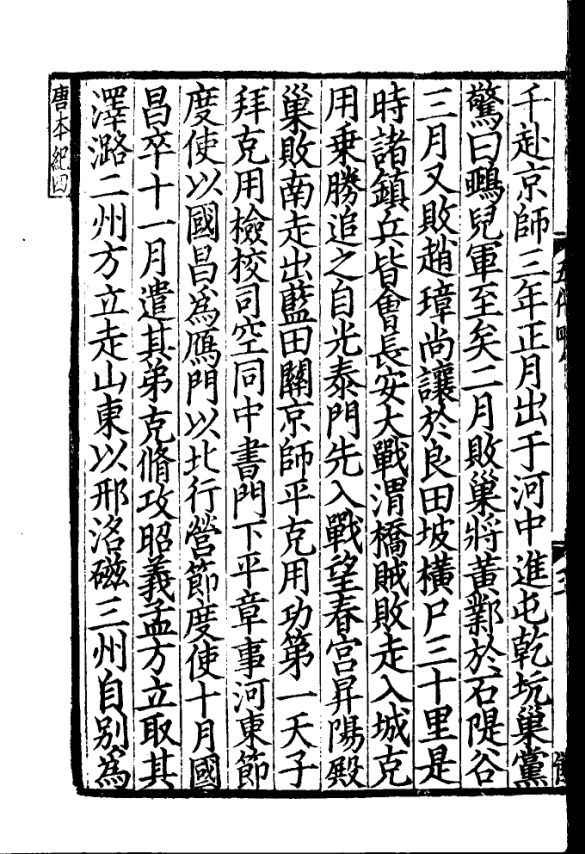 千赴京師三年正月出于河中進屯乾坑巢黨
驚曰鵶兒軍至矣二月敗巢將黃鄴於石隄谷
三月又敗趙璋尚讓於良田坡橫尸三十里是
時諸鎮兵皆會長安大戰渭橋賊敗走入城克
用乗勝追之自光泰門先入戰望春宫昇陽殿
巢敗南走出藍田關京師平克用功第一天子
拜克用檢校司空同中書門下平章事河東節
度使以國昌爲鴈門以北行營節度使十月國
昌卒十一月遣其弟克脩攻昭義孟方立取其
澤潞二州方立走山東以邢洺磁三州自別爲
唐本紀四